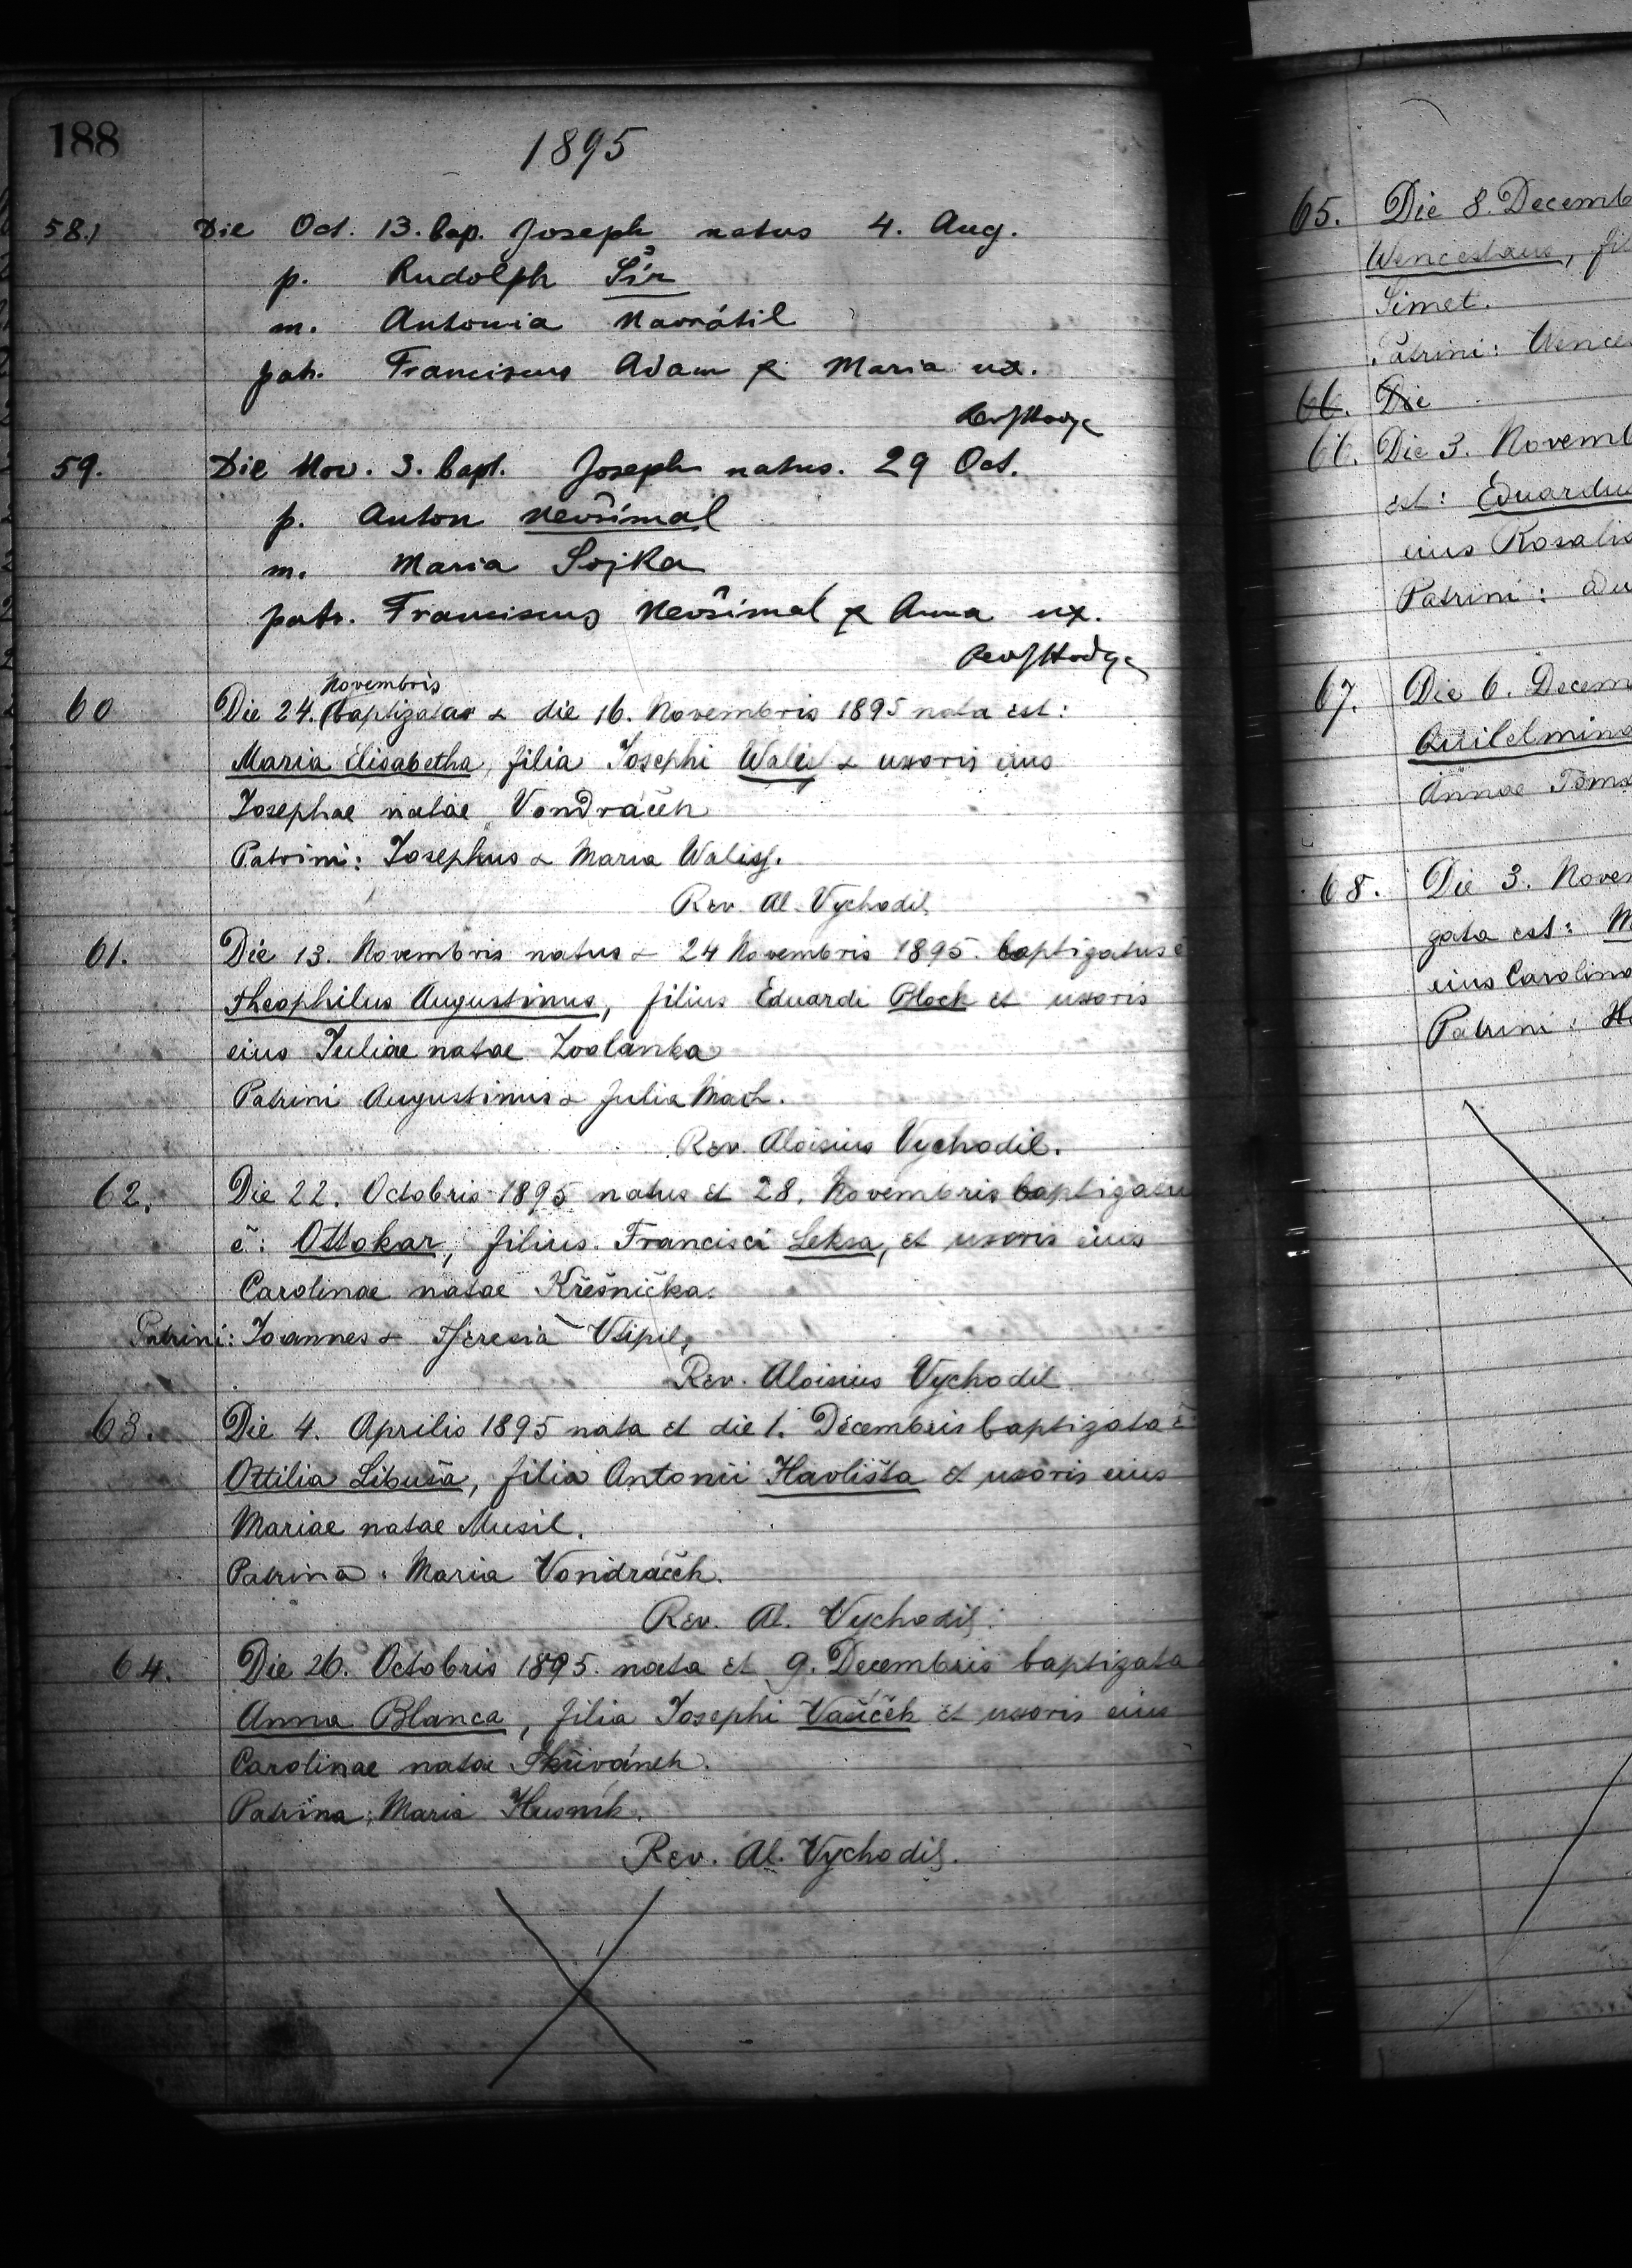 188
1895
58.) Die Oct. 13. bap. Joseph natus 4. Aug.
p. Rudolph Šír
m. Antonia Navrátil
patr. Franciscus Adam & Maria ux.
59. Die Nov. 3. bapt. Joseph natus. 29 Oct.
p. Anton Nevšímal
m. Maria Sojka
patr. Franciscus Nevšímal & Anna ux.
Novembris
60 Die 24. baptizata & die 16. Novembris 1895 nata est:
Maria Elisabetha, filia Josephi Walis & uxoris eius
Josephae natae Vondráček
Patrini: Josephus & Maria Walis.
Rev. Al. Vychodil
61. Die 13. Novembris natus & 24 Novembris 1895. baptizatus ẽ
Theophilus Augustinus, filius Eduardi Block et uxoris
eius Juliae natae Zoalanka
Patrini Augustinus & Julia Mach.
Rev. Aloisius Vychodil.
62. Die 22. Octobris 1895 natus et 28. Novembris baptizatu
ẽ: Ottokar, filius Francisci Leksa, et uxoris eius
Carolinae natae Křešnička.
Patrini: Joannes & Theresia Vsipil,
Rev. Aloisius Vychodil
63. Die 4. Aprilis 1895 nata et die 1. Decembris baptizata ẽ
Ottilia Libuša, filia Antonii Havlišta et uxoris eius
Mariae natae Musil.
Patrina: Maria Vondráček.
Rev. Al. Vychodil.
64. Die 26. Octobris 1895. nata et 9. Decembris baptizata
Anna Blanca, filia Josephi Vašíček et uxoris eius
Carolinae natae Skřivánek.
Patrina: Maria Husník.
Rev. Al. Vychodil.
65. Die 8. Decemb
Wenceslaus, fil
Simet.
Patrini: Wence
66. Die
66. Die 3. Novemb
est: Eduardu
eius Rosalia
Patrini: Adu
67. Die 6. Decem
Quilelmina
Annae Toma
68. Die 3. Novem
gata est: M
eius Carolina
Patrini: Ha